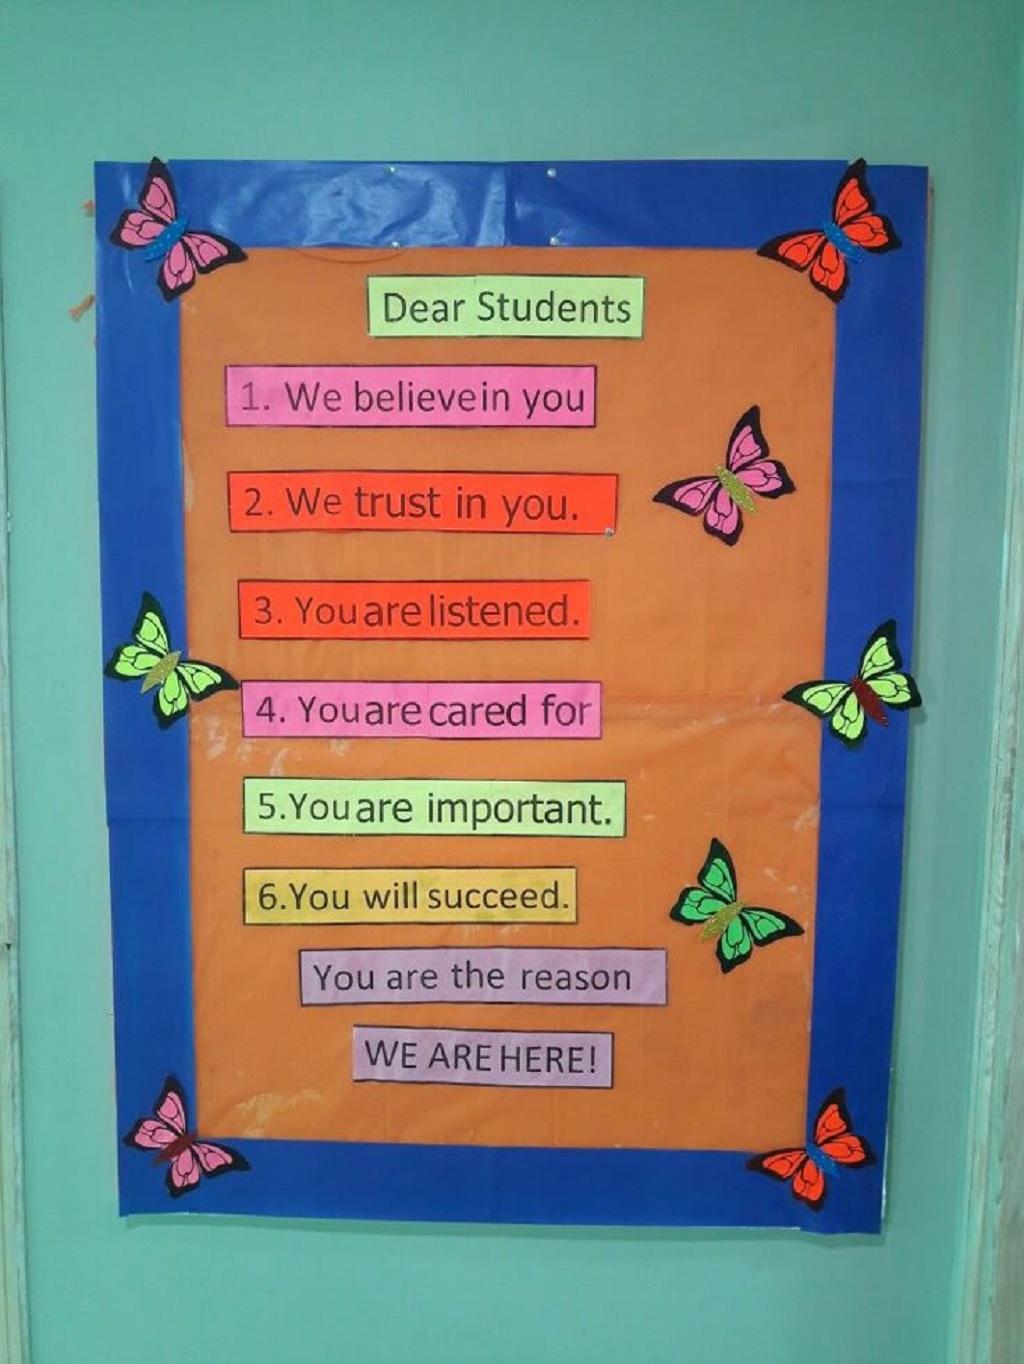 Dear Students
1. We believe in you
2. We trust in you.
3. You are listened.
4. You are cared for
5.You are important.
6.You will succeed.
You are the reason
WE ARE HERE!